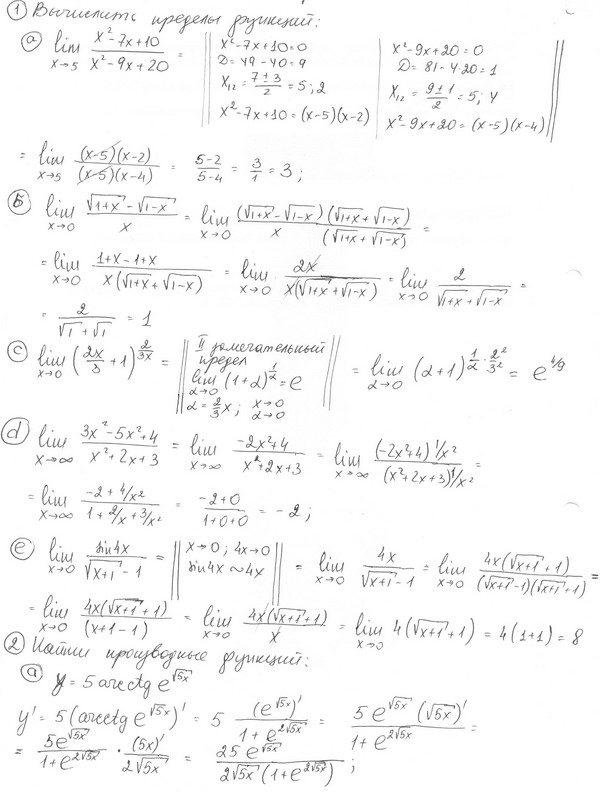 ① Вычислить пределы функций:
ⓐ lim x→5 (x²-7x+10)/(x²-9x+20) = || x²-7x+10=0 | x²-9x+20=0 ||
D=49-40=9 | D=81-4·20=1
x₁₂ = (7±3)/2 = 5; 2 | x₁₂ = (9±1)/2 = 5; 4
x²-7x+10=(x-5)(x-2) | x²-9x+20=(x-5)(x-4)
= lim x→5 ((x-5)(x-2))/((x-5)(x-4)) = (5-2)/(5-4) = 3/1 = 3;
ⓑ lim x→0 (√(1+x) - √(1-x))/x = lim x→0 ((√(1+x) - √(1-x))(√(1+x) + √(1-x)))/(x (√(1+x) + √(1-x))) =
= lim x→0 (1+x-1+x)/(x(√(1+x) + √(1-x))) = lim x→0 2x/(x(√(1+x) + √(1-x))) = lim x→0 2/(√(1+x) + √(1-x)) =
= 2/(√1 + √1) = 1
ⓒ lim x→0 (2x/3 + 1)^(2/3x) = || II замечательный
предел
lim α→0 (1+α)^(1/α) = e
α = 2/3 x; x→0 α→0 || = lim α→0 (α+1)^(1/α · 2²/3²) = e^(4/9)
ⓓ lim x→∞ (3x²-5x²+4)/(x²+2x+3) = lim x→∞ (-2x²+4)/(x²+2x+3) = lim x→∞ ((-2x²+4) 1/x²)/((x²+2x+3) 1/x²) =
= lim x→∞ (-2+4/x²)/(1+2/x+3/x²) = (-2+0)/(1+0+0) = -2;
ⓔ lim x→0 sin4x/(√(x+1) - 1) = || x→0; 4x→0
sin4x ~ 4x || = lim x→0 4x/(√(x+1) - 1) = lim x→0 (4x(√(x+1) + 1))/((√(x+1) - 1)(√(x+1) + 1)) =
= lim x→0 (4x(√(x+1) + 1))/(x+1-1) = lim x→0 (4x(√(x+1) + 1))/x = lim x→0 4(√(x+1) + 1) = 4(1+1) = 8
② Найти производные функций:
ⓐ y = 5 arcctg e^√(5x)
y' = 5(arcctg e^√(5x))' = 5 (e^√(5x))'/(1+e^(2√(5x))) = (5e^√(5x) (√(5x))')/(1+e^(2√(5x))) =
= 5e^√(5x)/(1+e^(2√(5x))) · (5x)'/(2√(5x)) = 25e^√(5x)/(2√(5x)(1+e^(2√(5x))));